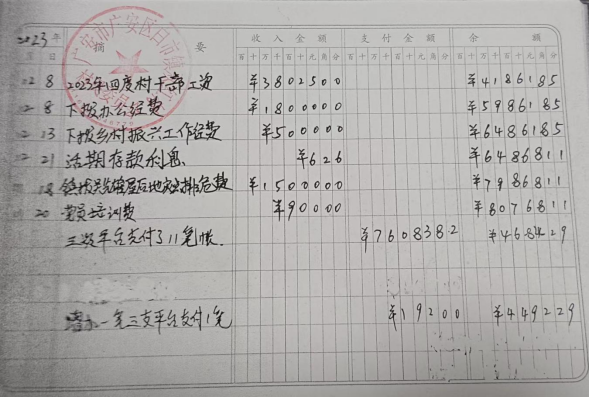 2023年 摘 要 收入金额 支付金额 余 额
月 日 百十万千百十元角分 百十万千百十元角分 百十万千百十元角分
广安市广安区白市镇
12 8 2023年四度村干部工资 ¥3802500 ¥4186185
12 8 下拨办公经费 ¥1800000 ¥5986185
12 13 下拨乡村振兴工作经费 ¥500000 ¥6486185
12 21 活期存款利息 ¥626 ¥6486811
18 ¥1500000 ¥7986811
20 党员培训费 ¥90000 ¥8076811
三资平台支付了11笔帐. ¥7608382 ¥468429
一笔三支平台支付1笔 ¥19200 ¥449229